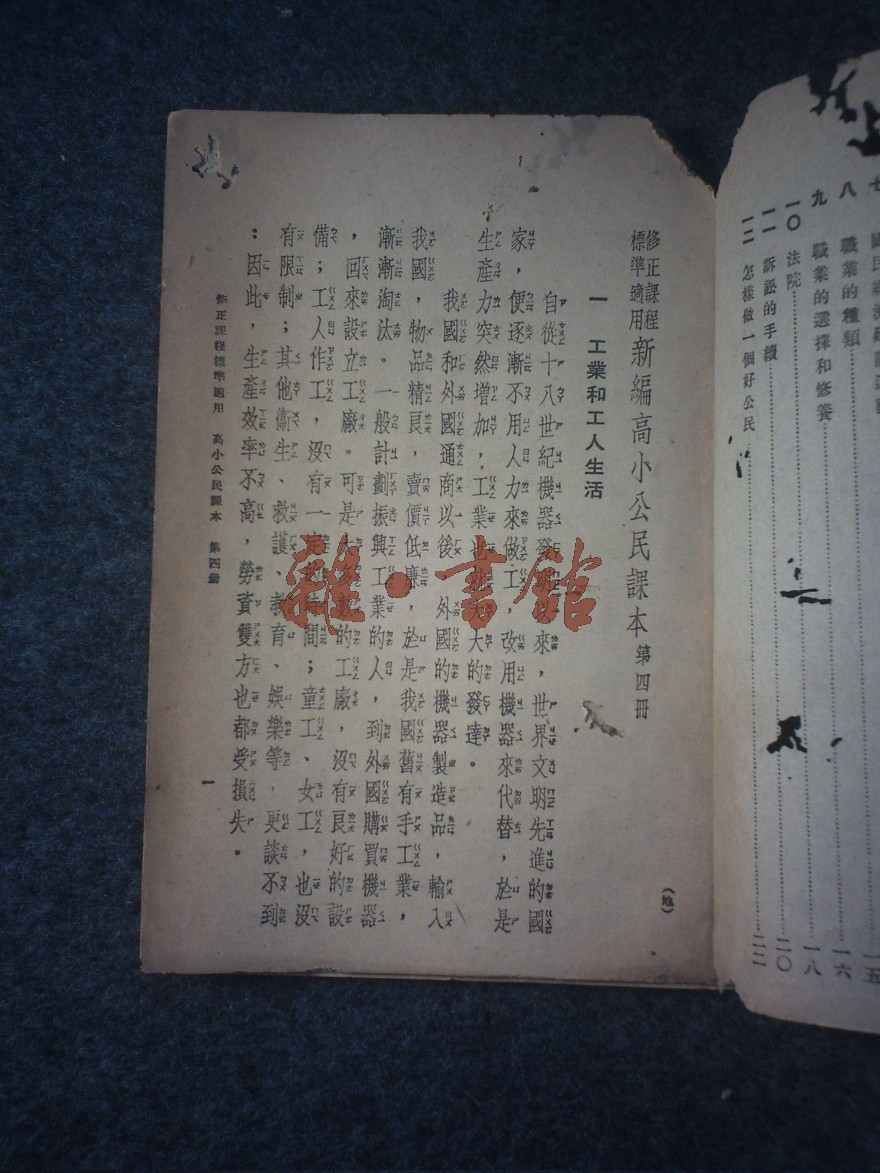 七
八 職業的種類 一六
九 職業的選擇和修養 一八
一〇 法院 二〇
一一 訴訟的手續
一二 怎樣做一個好公民 二二
修正課程標準適用 新編高小公民課本 第四冊
(地)
一 工業和工人生活
自從十八世紀機器發明以來，世界文明先進的國
家，便逐漸不用人力來做工，改用機器來代替，於是
生產力突然增加，工業也就大大的發達。
我國和外國通商以後，外國的機器製造品，輸入
我國，物品精良，賣價低廉，於是我國舊有手工業，
漸漸淘汰。一般計劃振興工業的人，到外國購買機器
，回來設立工廠。可是大多數的工廠，沒有良好的設
備；工人作工，沒有一定的時間；童工、女工，也沒
有限制；其他衞生、救護、教育、娛樂等，更談不到
：因此，生產效率不高，勞資雙方也都受損失。
修正課程標準適用 高小公民課本 第四冊
一
雜·書館